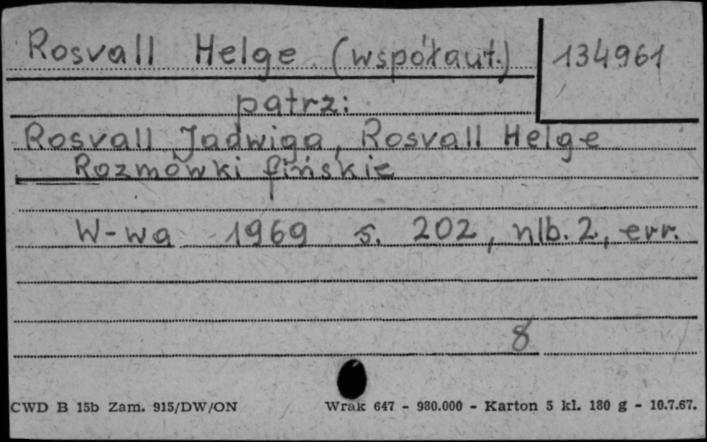 Rosvall Helge (współaut.) 134961
patrz:
Rosvall Jadwiga, Rosvall Helge
Rozmówki fińskie
W-wa 1969 s. 202, nlb. 2, err.
8
CWD B 15b Zam. 915/DW/ON Wrak 647 - 980.000 - Karton 5 kl. 180 g - 10.7.67.